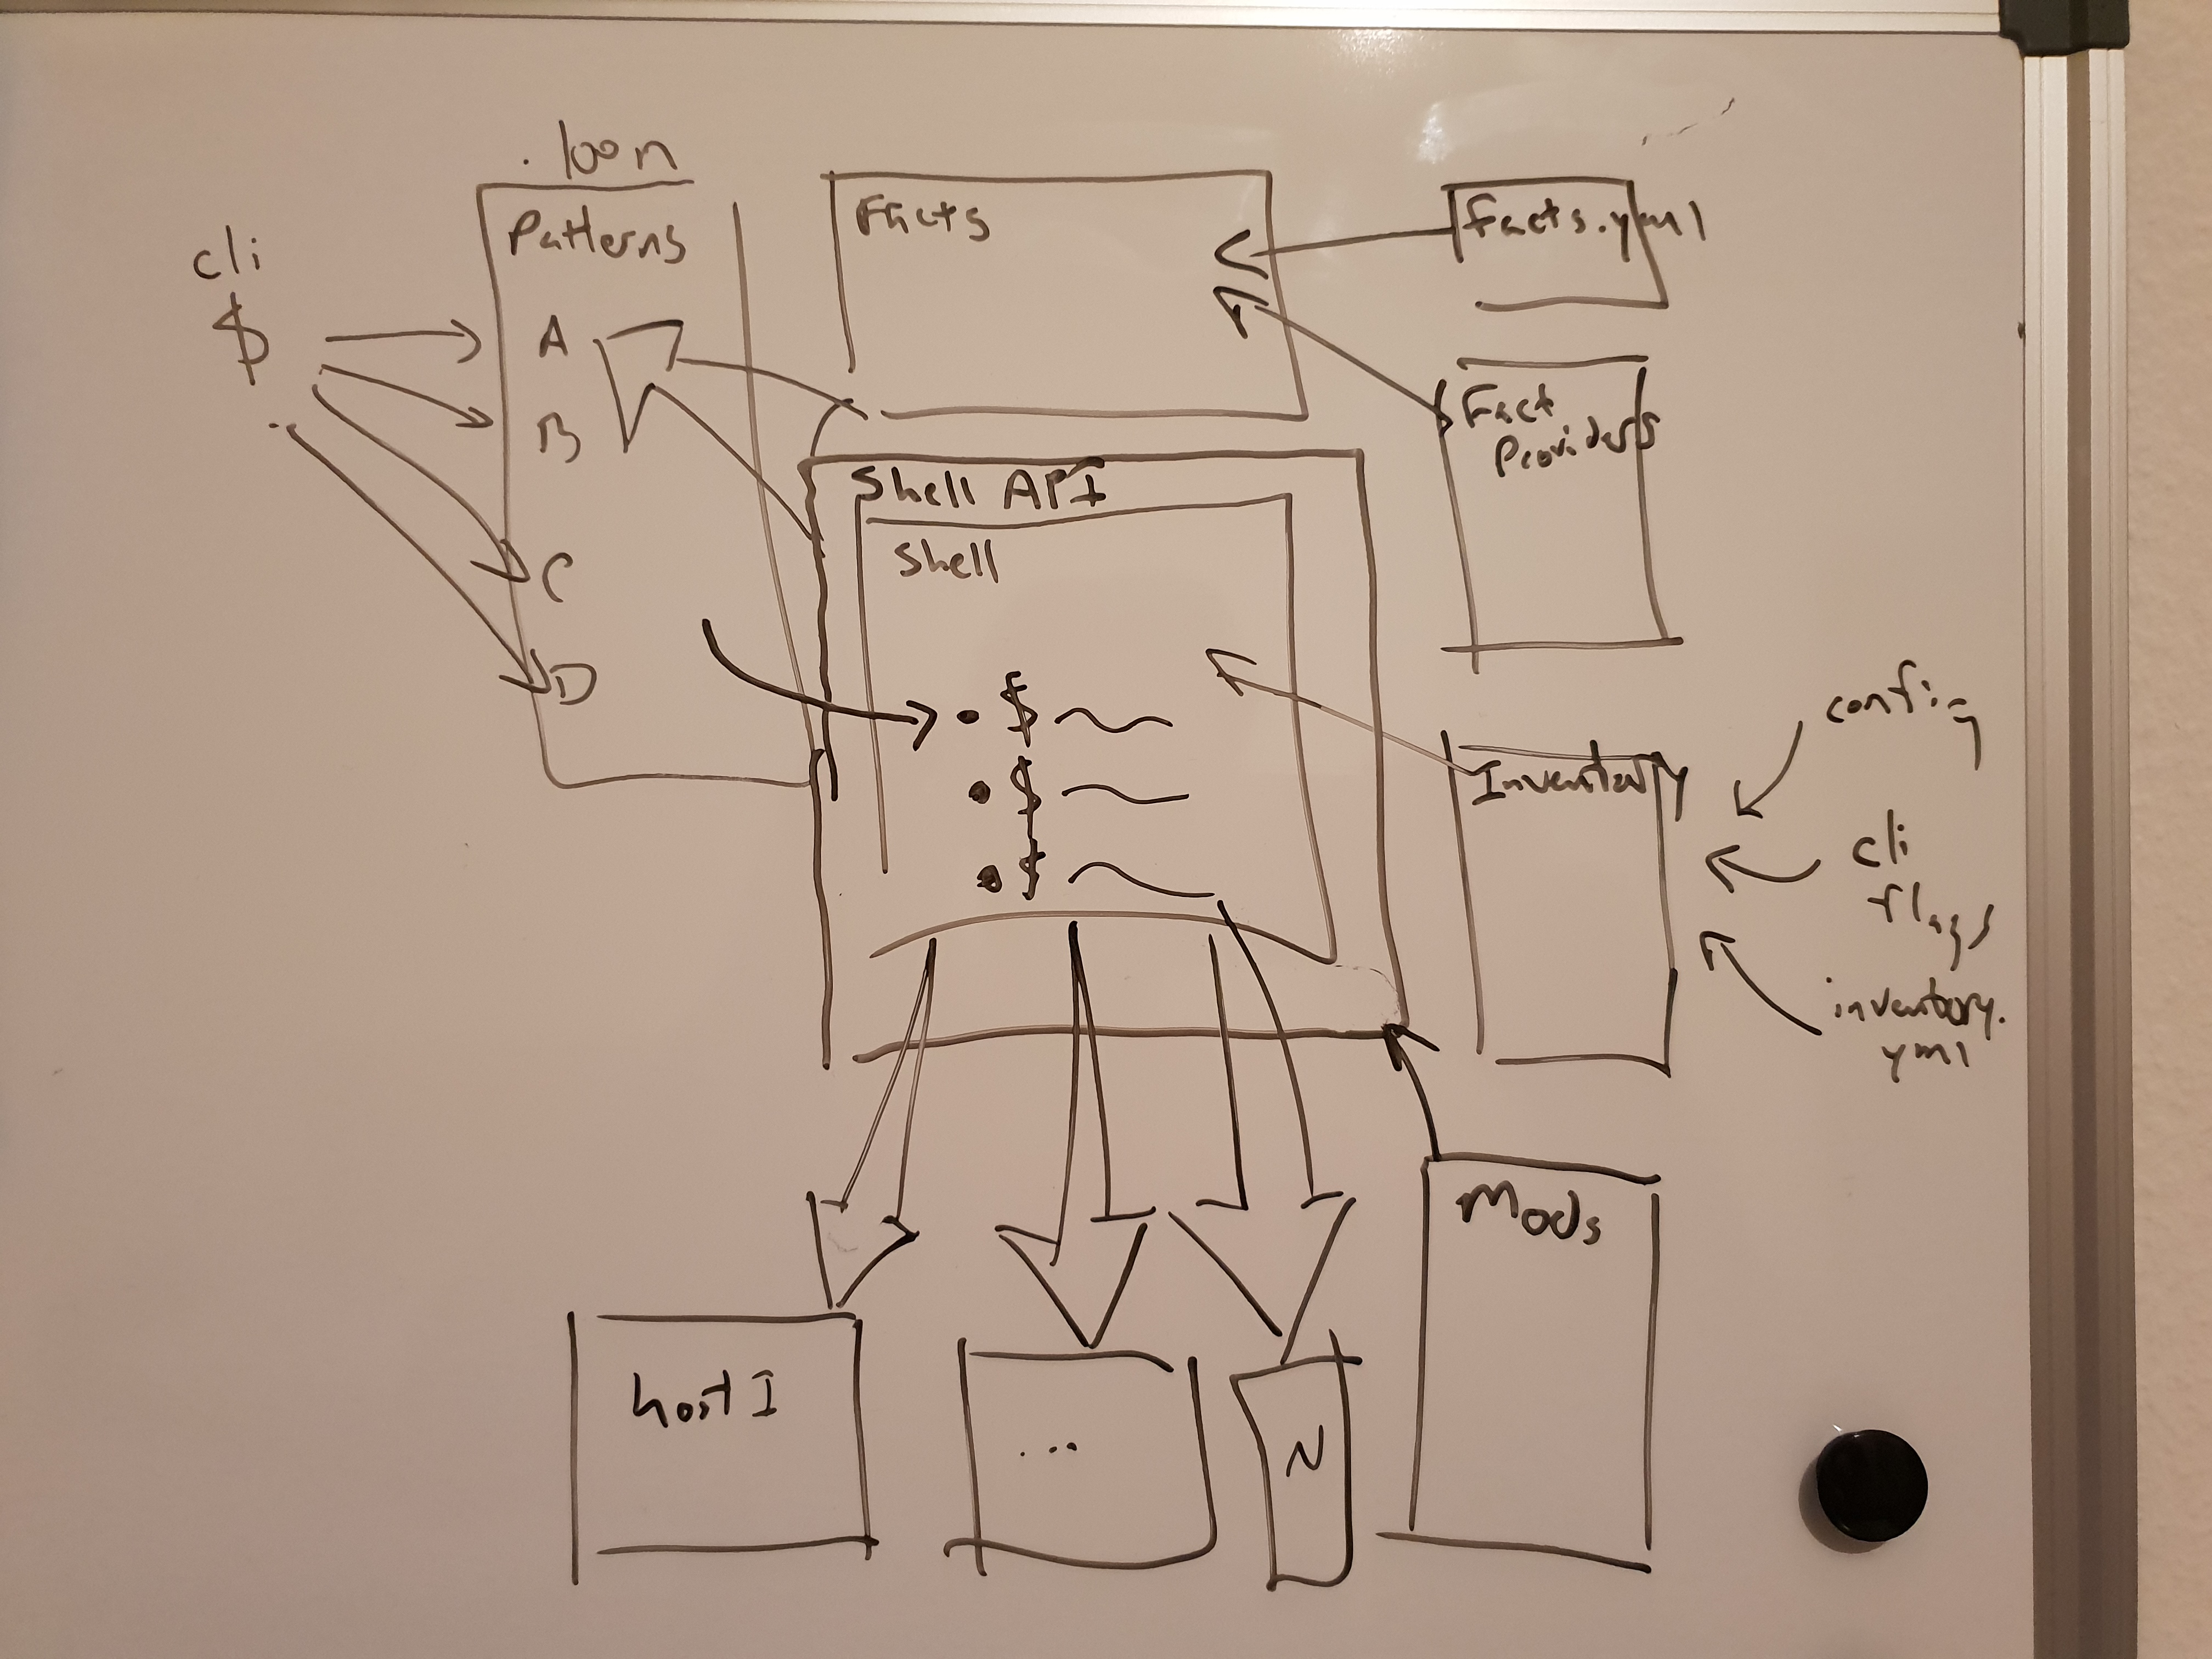 .loon
cli
$
Patterns
A
B
C
D
Facts
Facts.yml
Fact
Providers
Shell API
Shell
$
$
$
Inventory
config
cli
flags
inventory.
yml
Mods
host 1
...
N